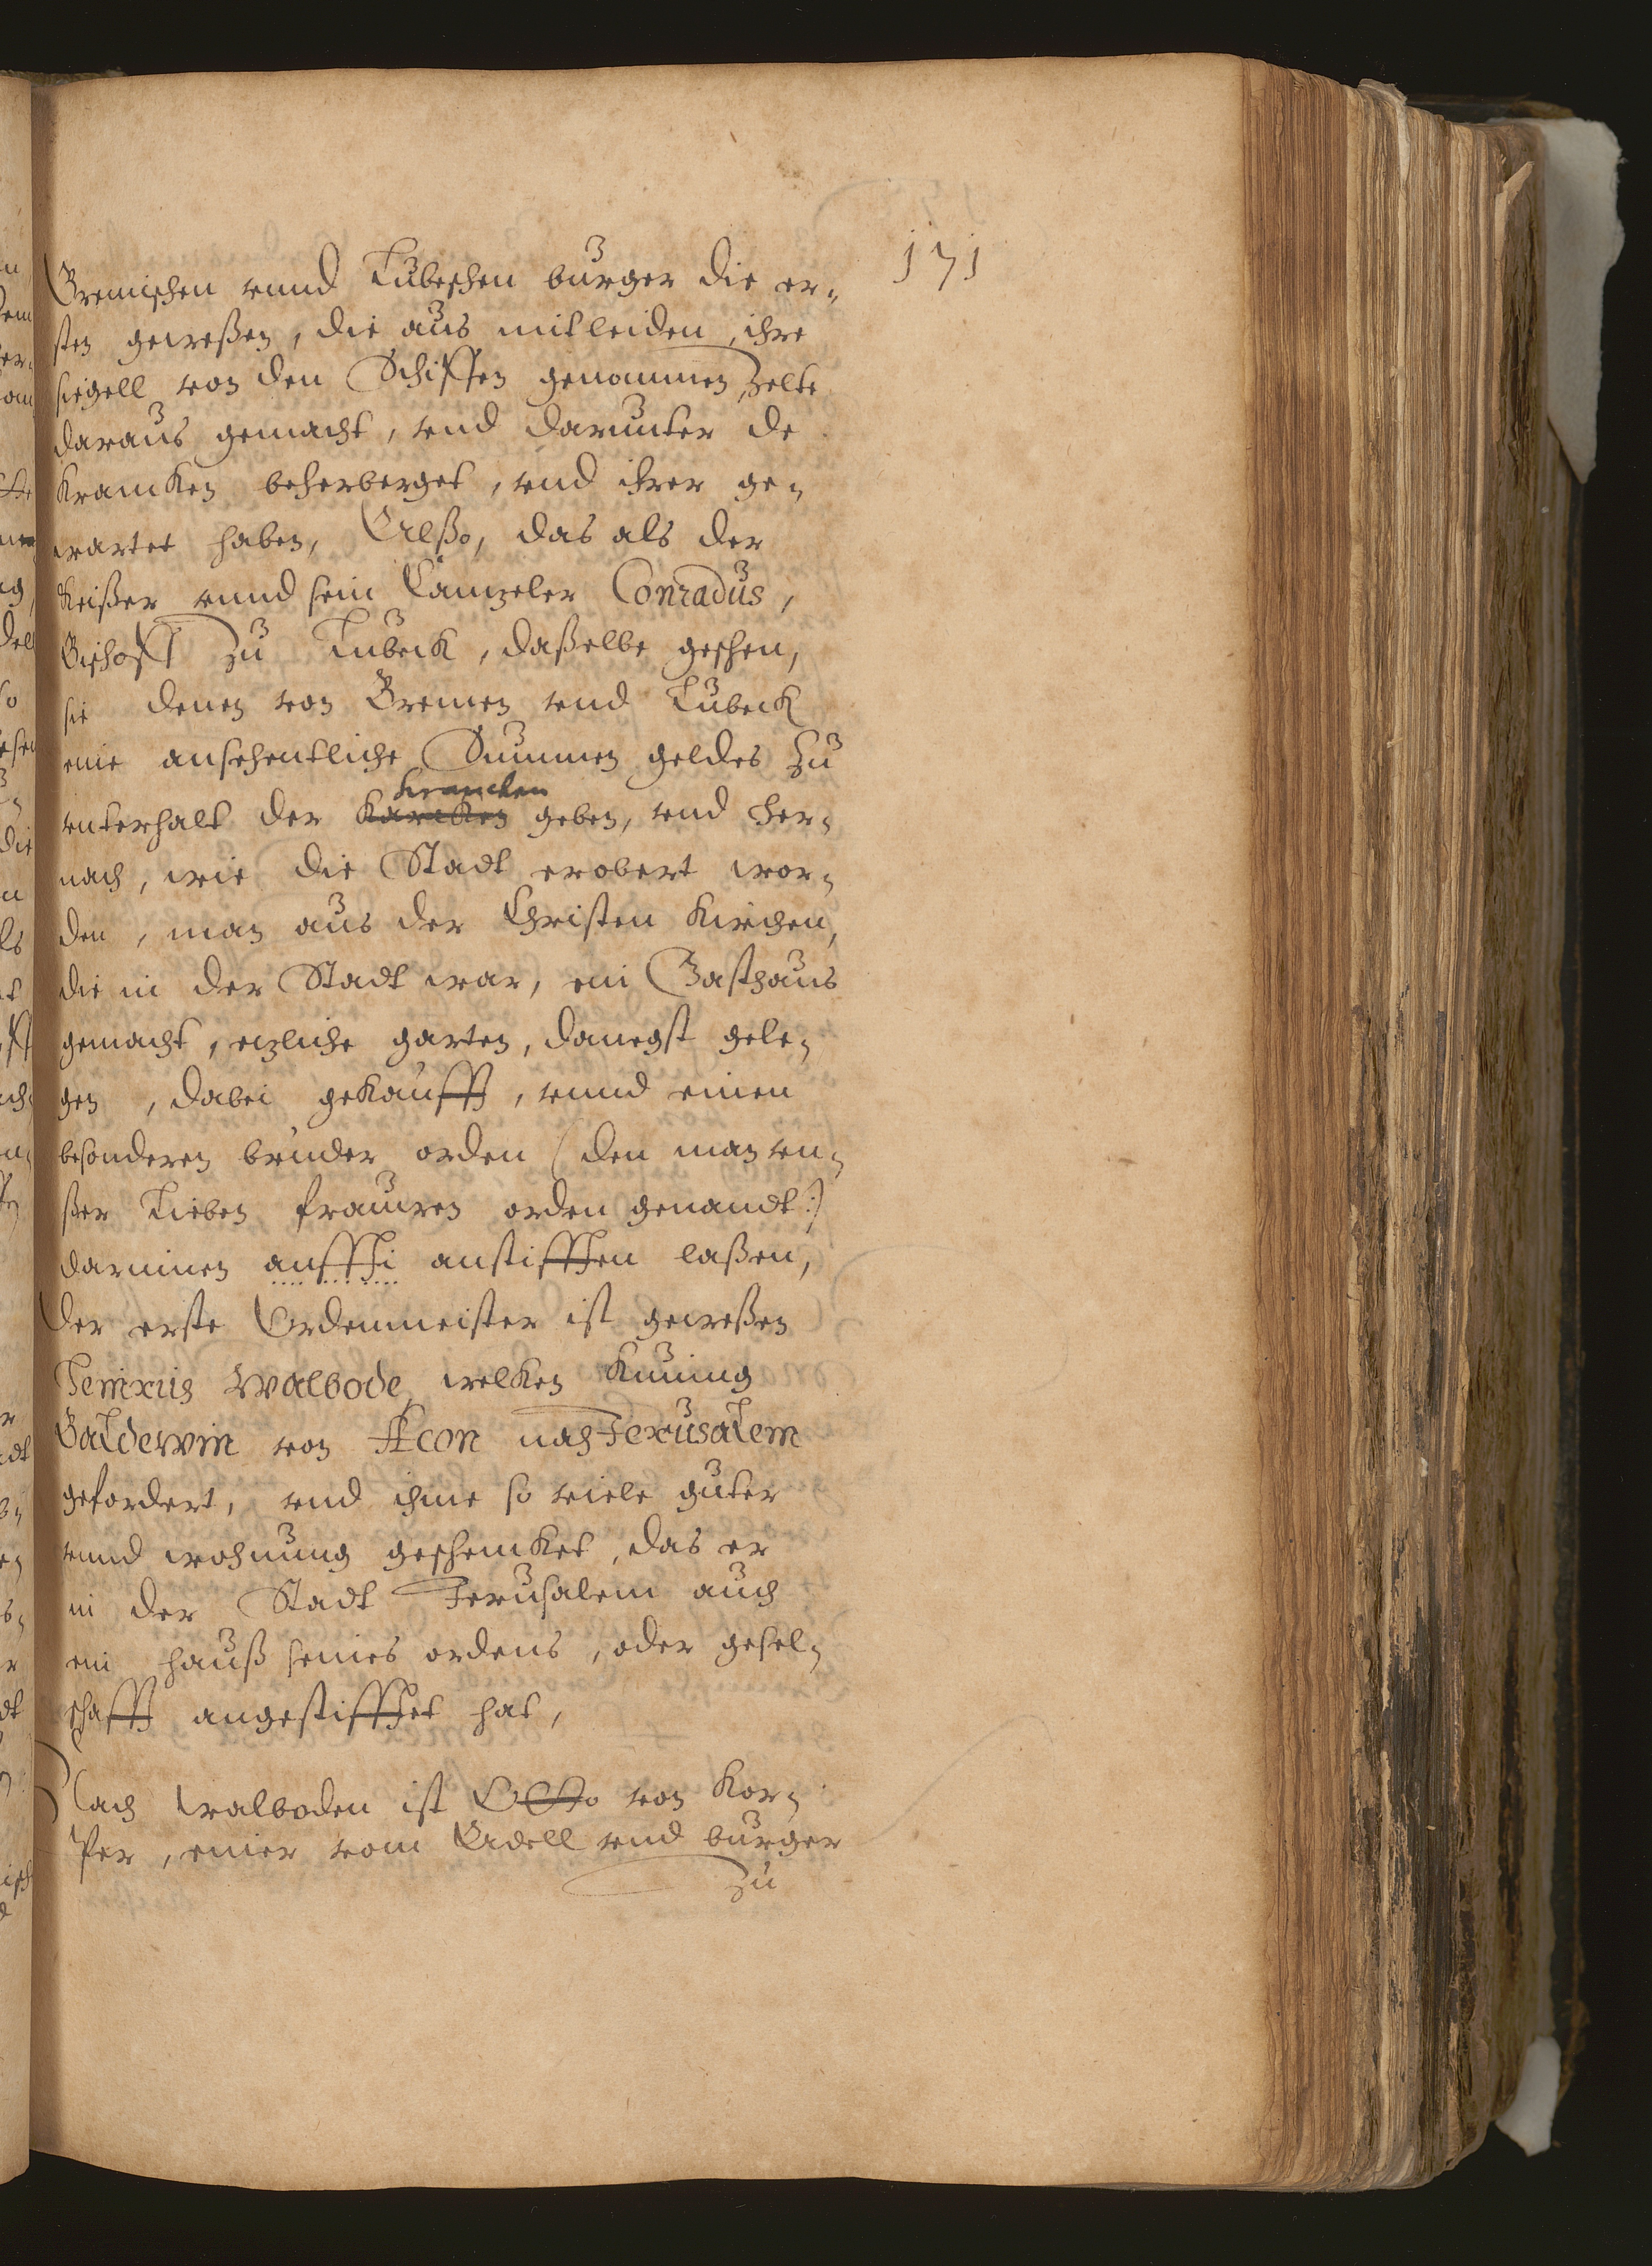 171
Bremischen vnnd Lubeschen burger die er-
sten gewesßen, die aus mitleiden, ihre
siegell von den Schiffen genommen, Zelte
daraus gemacht, vnd darunter de
krancken beherberget, vnd ihrer ge-
wartet haben, Alßo, das als der
Keißer vnnd sein Cantzeler Conradus,
Bischoff zu Lubeck, daßelbe gesehen,
sie denen von Bremen vnd Lubeck
eine ansehentliche Summen geldes zu
krancken
vnterhalt der karcken geben, vnd her-
nach, wie die Stadt erobert wor-
den, man aus der Christen Kirchen,
die in der Stadt war, ein Gasthaus
gemacht, etzliche garten, danegst gele-
gen, dabei gekaufft, vnnd einen
besonderen bruder orden (den man vn-
ßer Lieben frauwen orden genandt:)
darinnen anffti anstifften laßen,
Der erste Ordenmeister ist geweßen
Henricus Walbode, welken Kuning
Baldewin von Acon nach Jerusalem
gefordert, vnd ihme so viele guter
vnnd wohnung geschencket, das er
in der Stadt Jerusalem auch
ein hauß seines ordens, oder gesel-
schafft angestifftet hat,
Nach Walboden ist Otto von Kor-
per, einer vom Adell vnd burger
zu